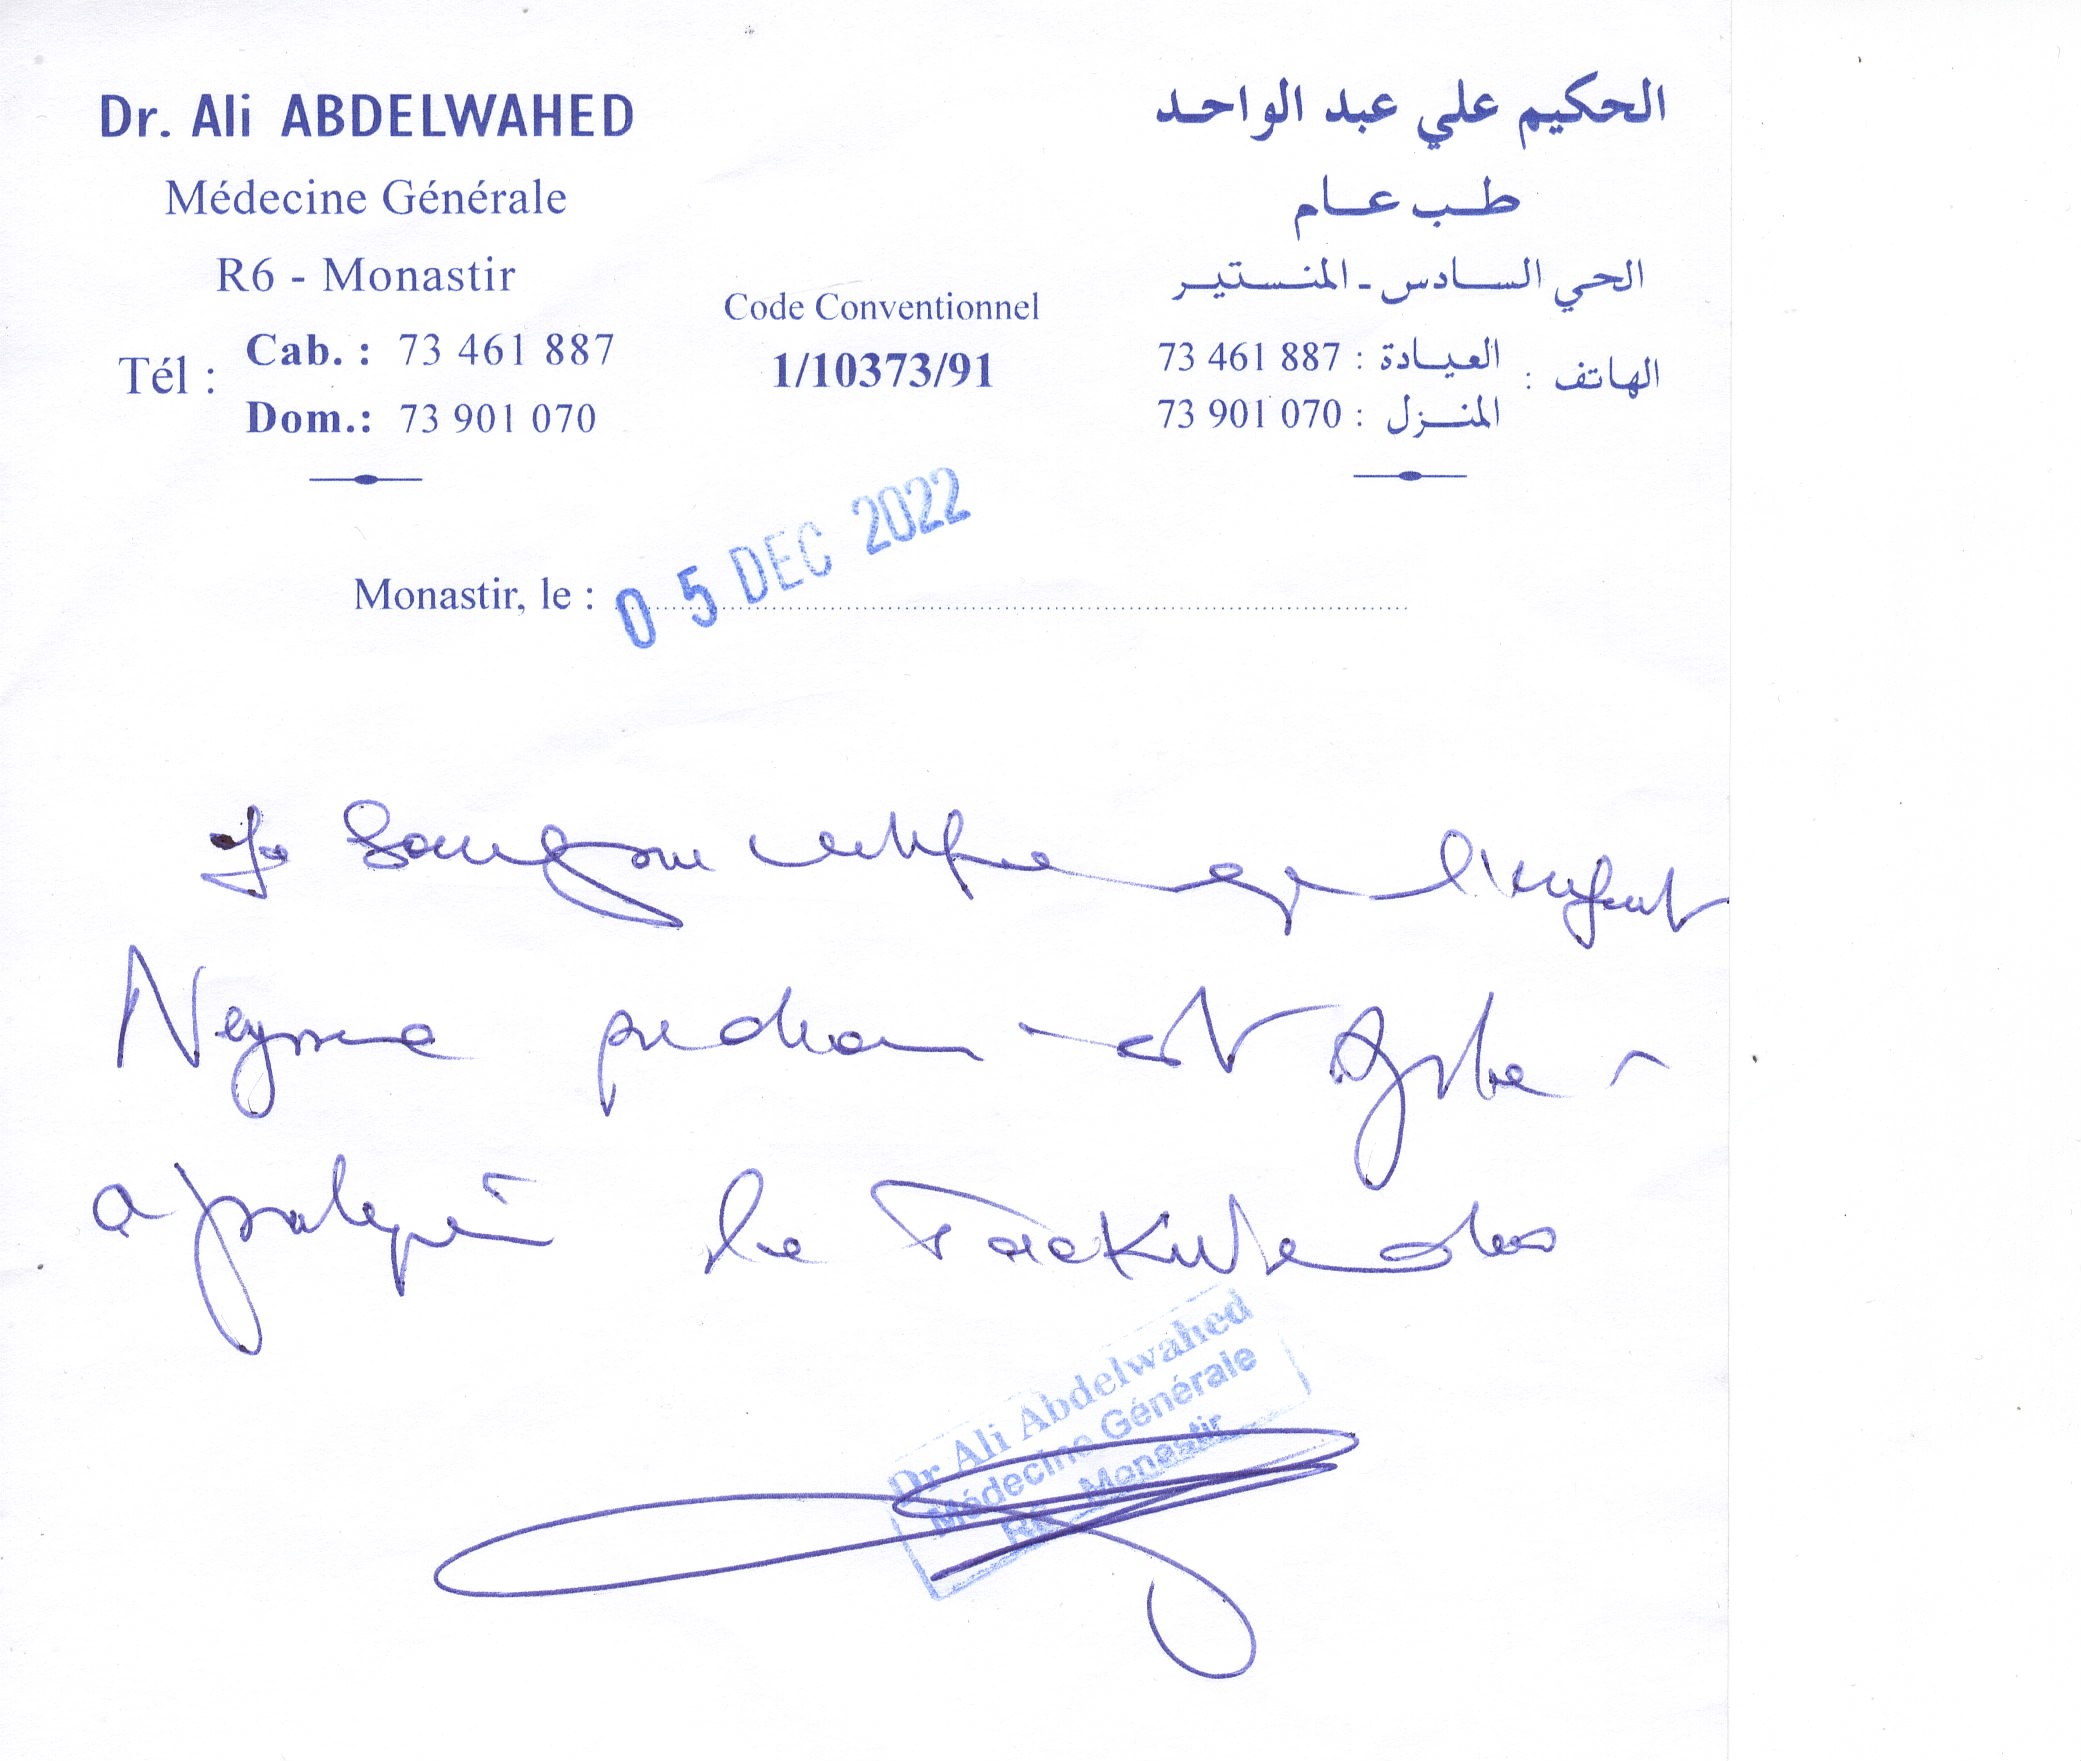 Dr. Ali ABDELWAHED
Médecine Générale
R6 - Monastir
Tél : Cab. : 73 461 887
Dom.: 73 901 070
Code Conventionnel
1/10373/91
الحكيم علي عبد الواحد
طب عام
الحي السادس - المنستير
الهاتف : العيادة : 73 461 887
المنزل : 73 901 070
Monastir, le : 05 DEC 2022
Je certifie que l'enfant
est
a pratiquer le
Dr Ali Abdelwahed
Médecine Générale
R6 Monastir